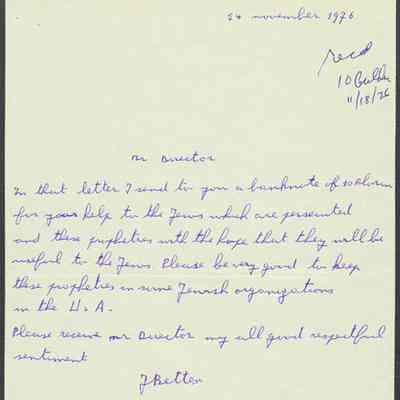 24 november 1976
recd
10 Gulden
11/18/76
Mr Director
In that letter I send to you a banknote of 10 Florin
for your help to the Jews which are persecuted
and these prophetries with the hope that they will be
useful to the Jews Please be very good to keep
these prophetries in some Jewish organizations
in the U.S.A.
Please receive mr Director my all good respectful
sentiment